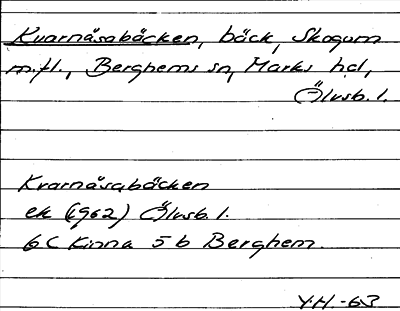 Kvarnåsabäcken, bäck, Skogum
m.fl., Berghems sn, Marks hd,
Älvsb. l.
Kvarnåsabäcken
ek (1962) Älvsb. l.
6 C Kinna 5 b Berghem.
Y.H. -63